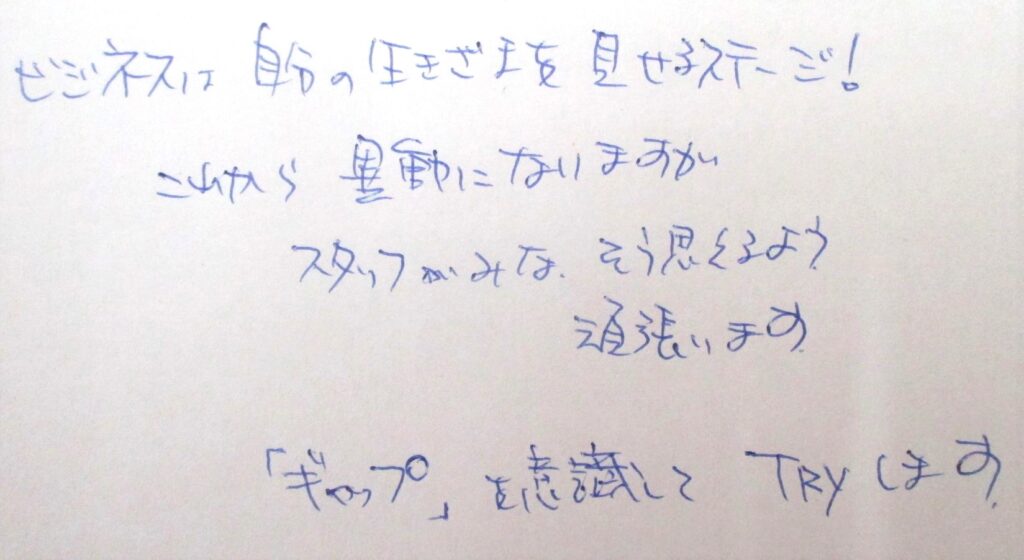 ビジネスは 自分の 生きざまを 見せるステージ!
これから 異動になりますが
スタッフがみな、そう思えるよう
頑張ります
「ギャップ」を意識して TRYします